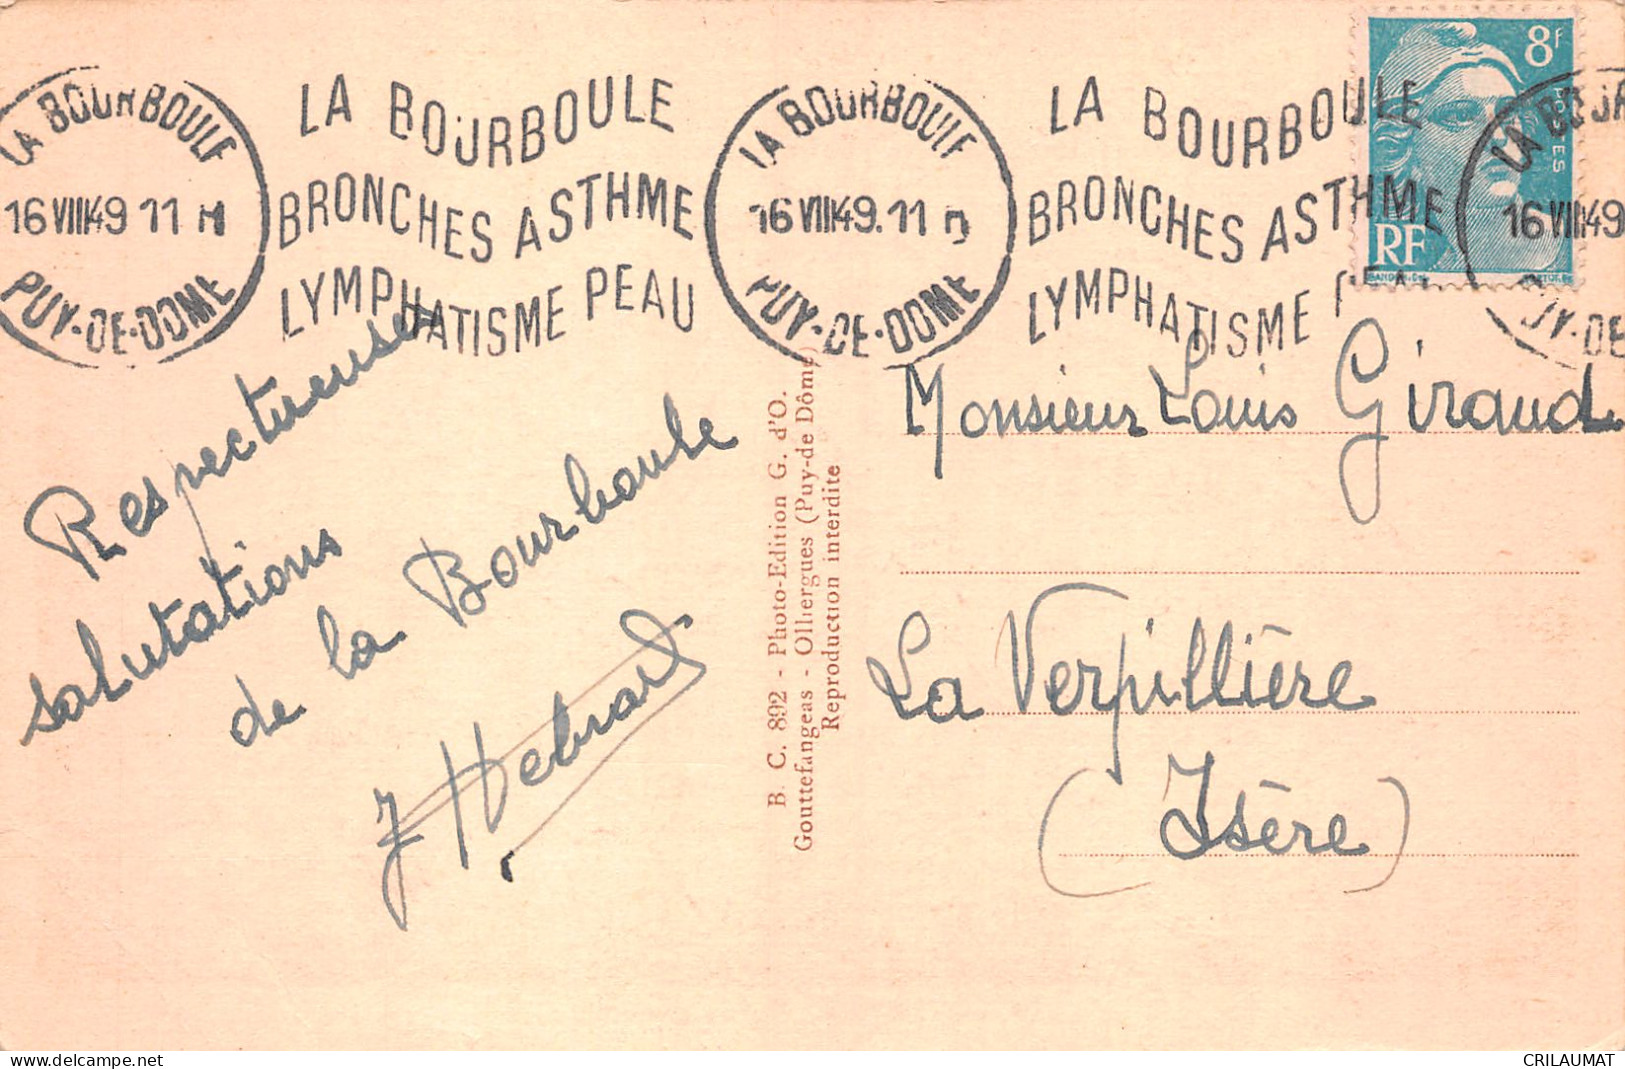 LA BOURBOULE
16 VIII 49 11 H
PUY-DE-DOME
LA BOURBOULE
BRONCHES ASTHME
LYMPHATISME PEAU
LA BOURBOULE
16 VIII 49. 11
PUY-DE-DOME
LA BOURBOULE
BRONCHES ASTHME
LYMPHATISME PEAU
8F
POSTES
RF
LA BOUR
16 VIII 49
PUY-DE
Respectueuses
salutations
de la Bourboule
J Hebrard
B. C. 892 - Photo-Edition G. d'O.
Gouttefangeas - Olliergues (Puy-de Dôme)
Reproduction interdite
Monsieur Louis Giraud
La Verpillière
(Isère)
www.delcampe.net
CRILAUMAT